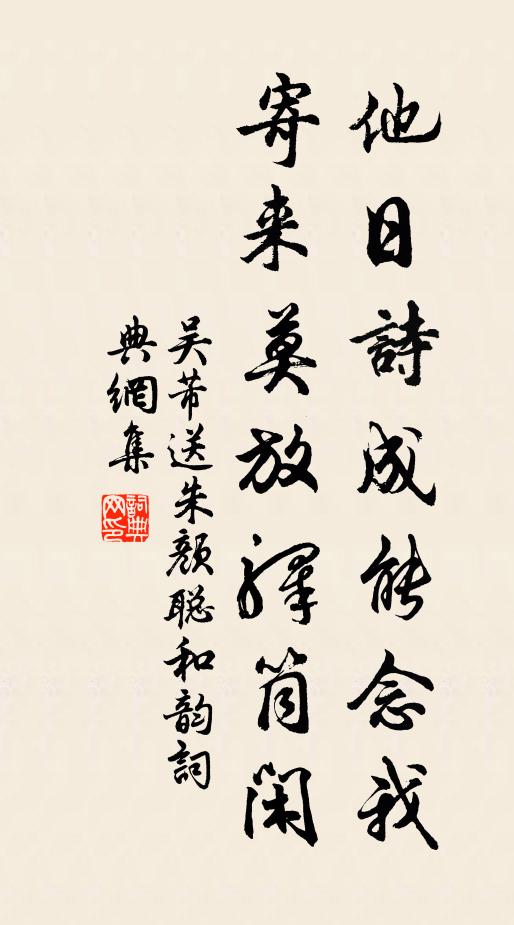 他日詩成能念我
寄来莫放驛筒閑
吴芾送朱顏聪和韵詞
典網集
詞典网印